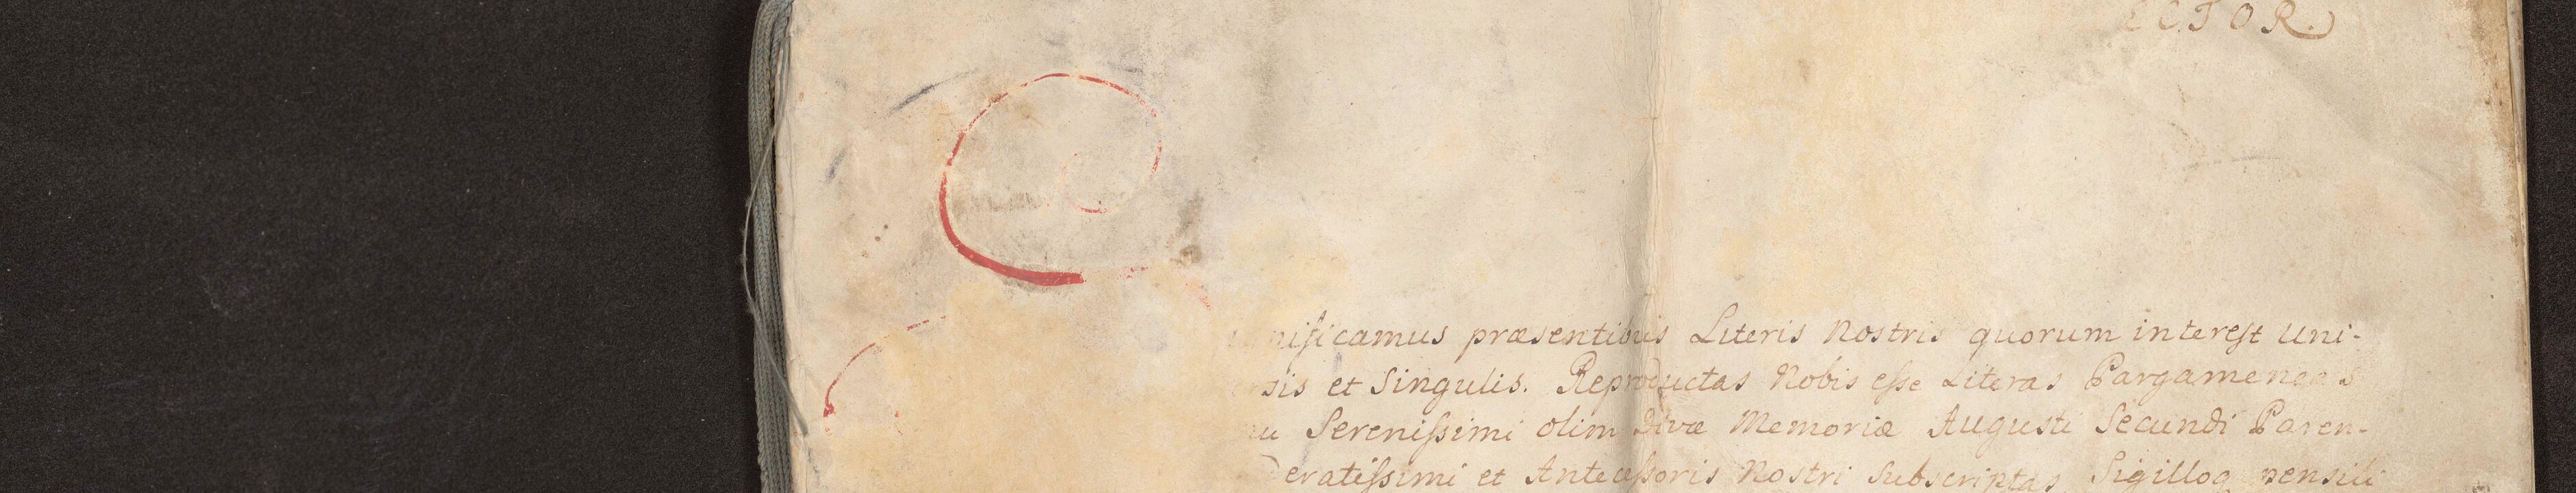 ECTOR.
nificamus præsentibus Literis Nostris quorum interest Uni-
sis et Singulis. Reproductas Nobis esse Literas Pargameneas
nu Serenissimi olim Divæ Memoriæ Augusti Secundi Paren-
Deratissimi et Antecessoris Nostri Subscriptas, Sigilloq pensili